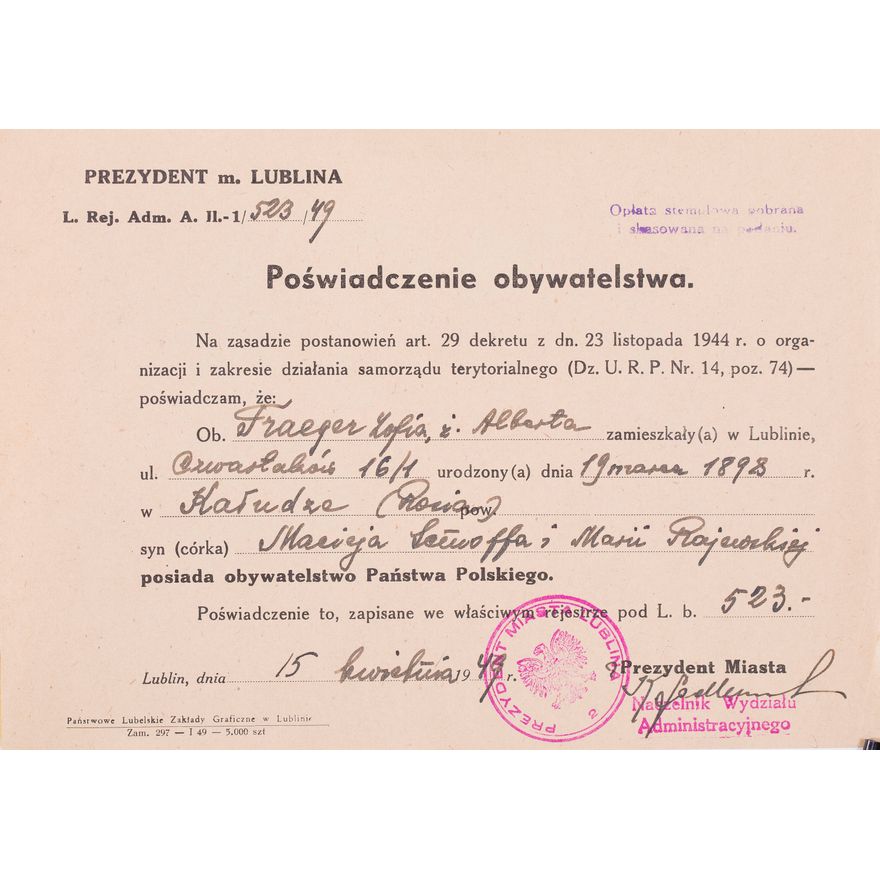 PREZYDENT m. LUBLINA
L. Rej. Adm. A. II.-1/523/49
Opłata stemplowa pobrana
i skasowana na podaniu.
Poświadczenie obywatelstwa.
Na zasadzie postanowień art. 29 dekretu z dn. 23 listopada 1944 r. o orga-
nizacji i zakresie działania samorządu terytorialnego (Dz. U. R. P. Nr. 14, poz. 74) —
poświadczam, że:
Ob. Traeger Zofia, ż. Alberta zamieszkały(a) w Lublinie,
ul. Czwartaków 16/1 urodzony(a) dnia 19 marca 1898 r.
w Kałudze (Rosja) pow.
syn (córka) Macieja i Marii Rajewskiej
posiada obywatelstwo Państwa Polskiego.
Poświadczenie to, zapisane we właściwym rejestrze pod L. b. 523.-
Lublin, dnia 15 kwietnia 1949 r.
PREZYDENT MIASTA LUBLINA 2
Prezydent Miasta
Naczelnik Wydziału
Administracyjnego
Państwowe Lubelskie Zakłady Graficzne w Lublinie
Zam. 297 — I 49 — 5.000 szt